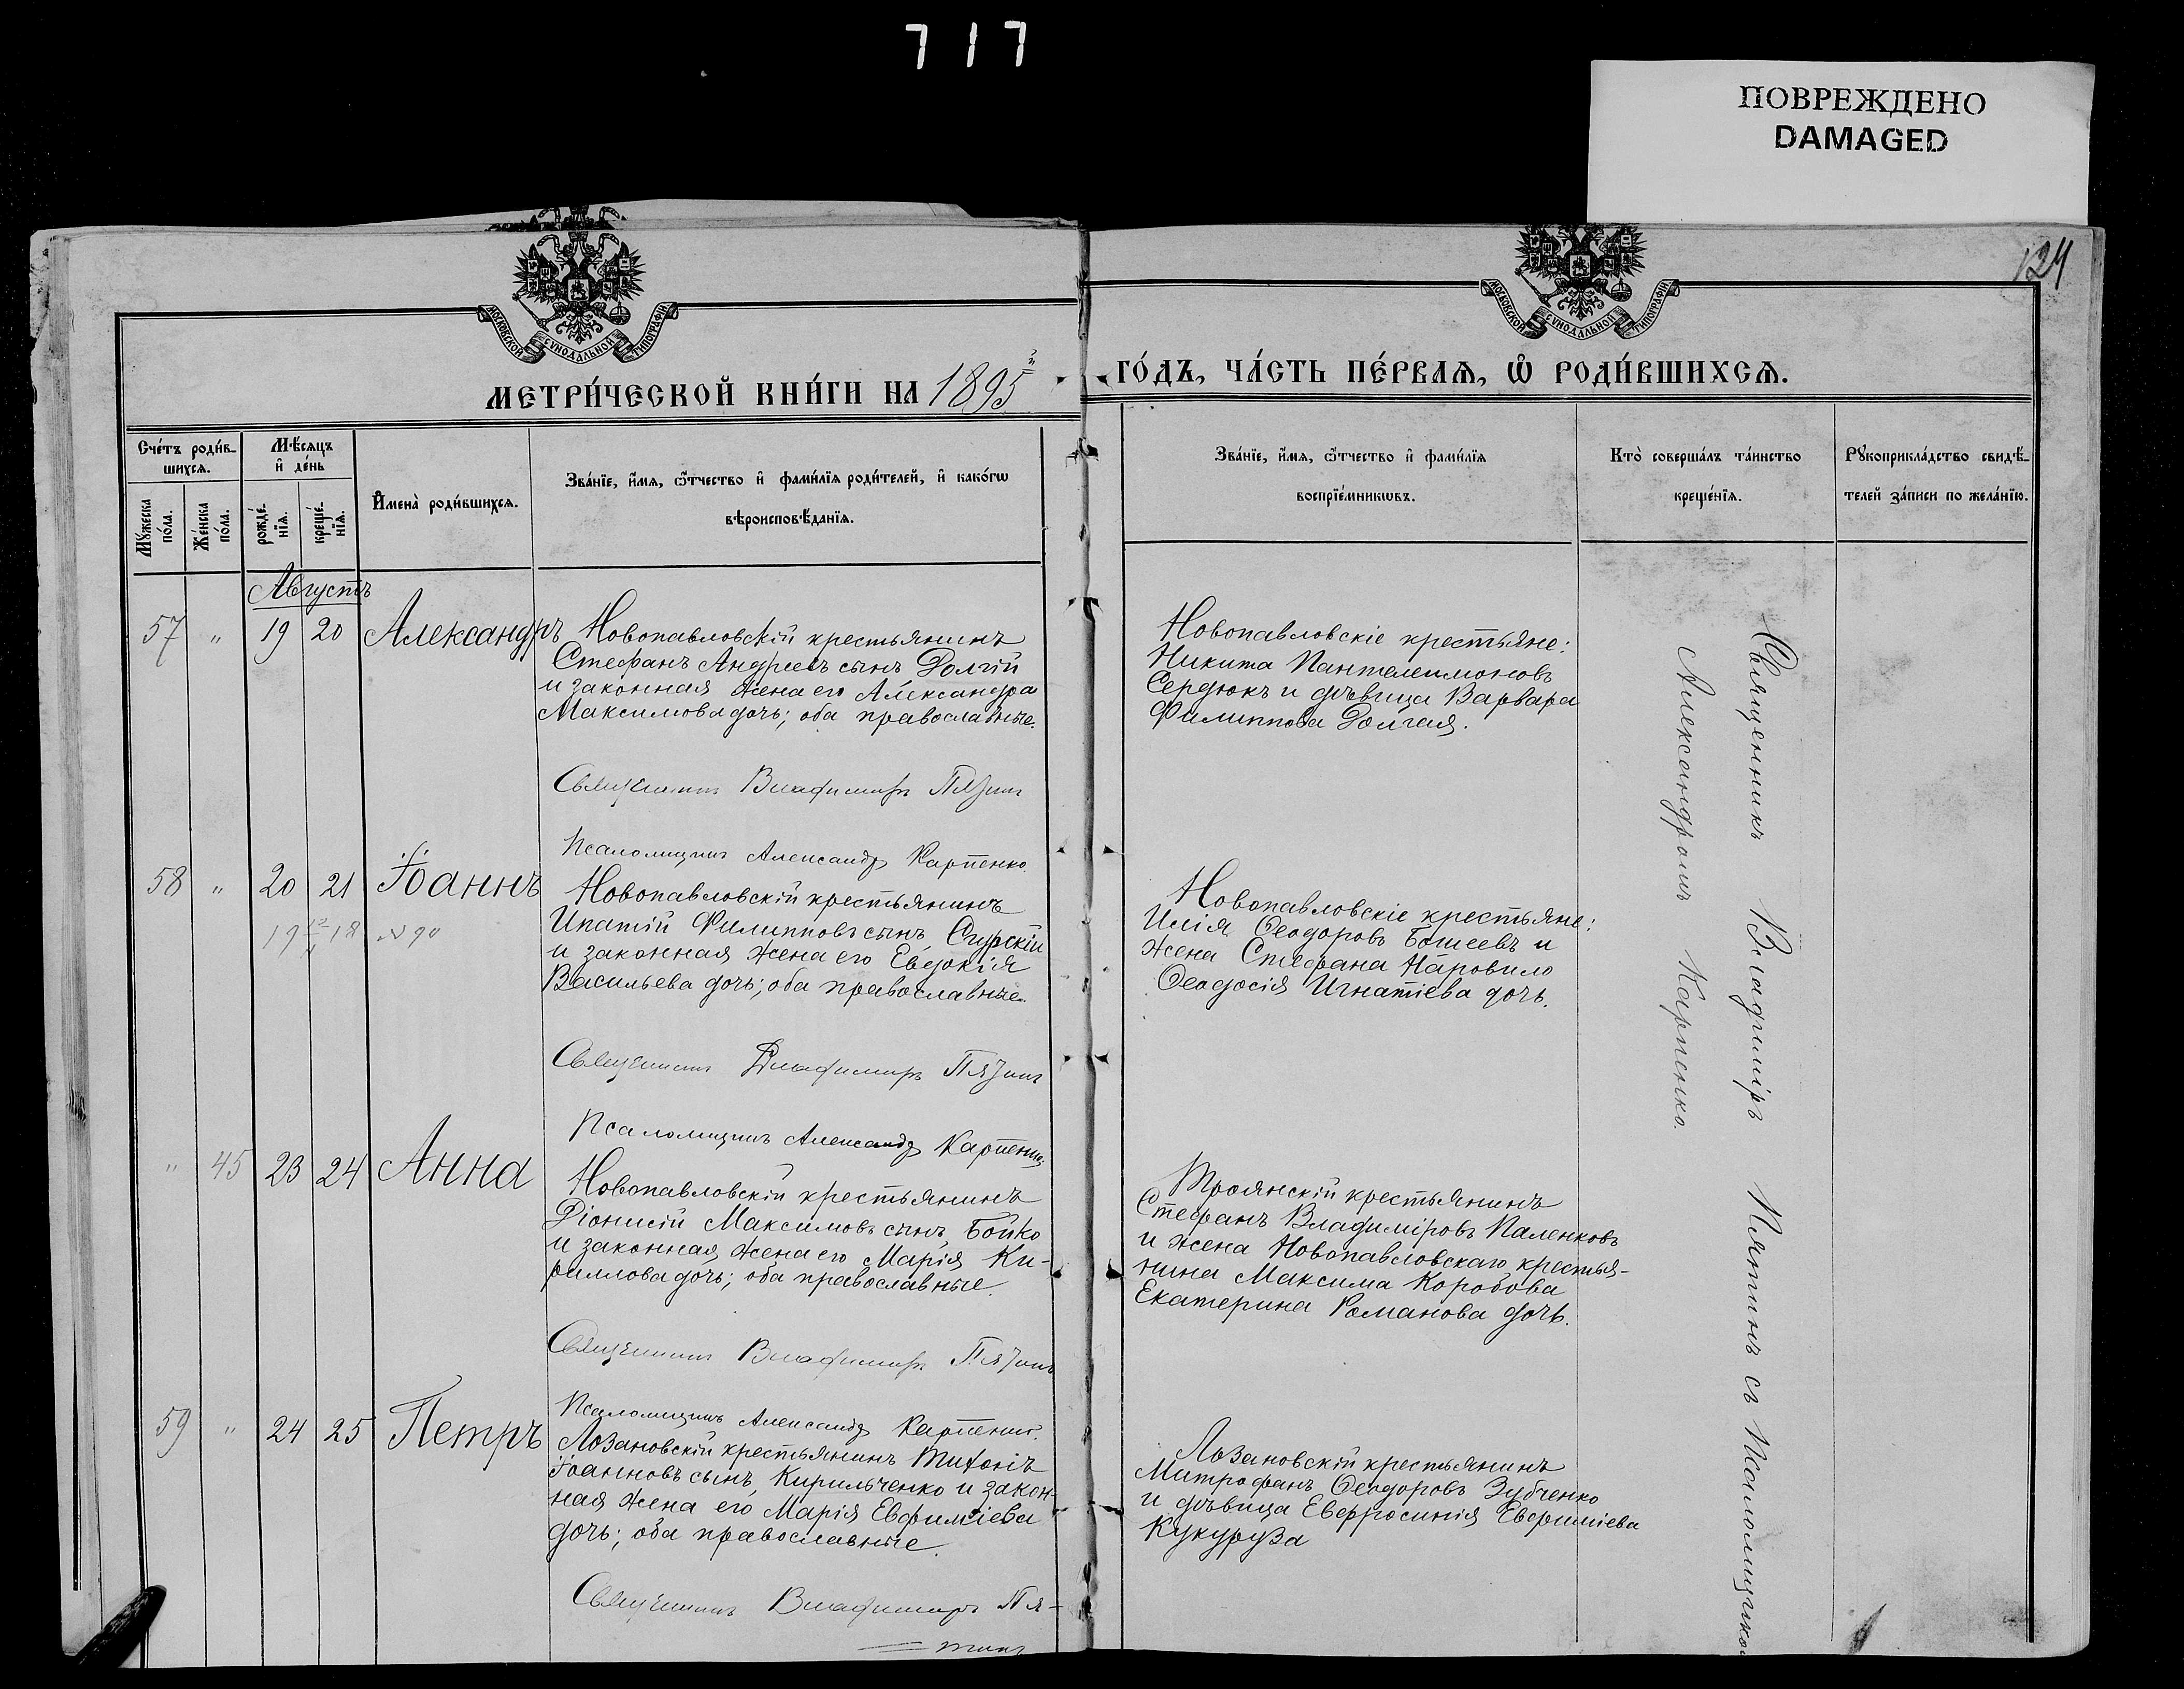 717
ПОВРЕЖДЕНО
DAMAGED
124
МОСКОВСКОЙ СѴНОДАЛЬНОЙ ТИПОГРАФІИ
МОСКОВСКОЙ СѴНОДАЛЬНОЙ ТИПОГРАФІИ
МЕТРИ́ЧЕСКОЙ КНИ́ГИ НА 1895й
ГО́ДЪ, ЧА́СТЬ ПЕ́РВАѦ, Ѡ РОДИ́ВШИХСѦ.
Сче́тъ роди́в-
шихсѧ.
Мꙋжеска по́ла.
Же́нска по́ла.
Мѣ́сѧцъ
и҆ де́нь
рожде́-
нїѧ.
креще́-
нїѧ.
И҆мена̀ роди́вшихсѧ.
Зва́нїе, и҆́мѧ, ѻ҆́тчество и҆ фами́лїѧ роди́телей, и҆ како́гѡ
вѣроисповѣ́данїѧ.
Зва́нїе, и҆́мѧ, ѻ҆́тчество и҆ фами́лїѧ
воспрїе́мникѡвъ.
Кто̀ соверша́лъ та́инство
креще́нїѧ.
Рꙋкоприкла́дство свидѣ́-
телей за́писи по жела́нїю.
Августъ
57 " 19 20 Александръ
Новопавловскій крестьянинъ
Стефанъ Андреевъ сынъ Долгій
и законная жена его Александра
Максимова дочь; оба православные.
Священникъ Владимиръ Пятинъ
Псаломщикъ Александръ Карпенко
Новопавловскіе крестьяне:
Никита Пантелеимоновъ
Сердюкъ и дѣвица Варвара
Филиппова Долгая.
58 " 20 21 Іоаннъ
19 18 №90
Новопавловскій крестьянинъ
Ипатій Филипповъ сынъ
и законная жена его Евдокія
Васильева дочь; оба православные.
Священникъ Владимиръ Пятинъ
Псаломщикъ Александръ Карпенко
Новопавловскіе крестьяне:
Илія Ѳеодоровъ и
жена Стефана Наровило
Ѳеодосія Игнатіева дочь.
" 45 23 24 Анна
Новопавловскій крестьянинъ
Діонисій Максимовъ сынъ Бойко
и законная жена его Марія Ки-
риллова дочь; оба православные.
Священникъ Владимиръ Пятинъ
Псаломщикъ Александръ Карпенко
Троянскій крестьянинъ
Стефанъ Владиміровъ Паленковъ
и жена Новопавловскаго крестья-
нина Максима Коробова
Екатерина Романова дочь.
59 " 24 25 Петръ
Лозановскій крестьянинъ Тихонъ
Іоанновъ сынъ Кирильченко и закон-
ная жена его Марія Евфиміева
дочь; оба православные.
Священникъ Владимиръ Пя-
тинъ
Лозановскій крестьянинъ
Митрофанъ Ѳеодоровъ Зубченко
и дѣвица Евфросинія Евфиміева
Кукуруза
Священникъ Владиміръ Пятинъ съ Псаломщикомъ
Александромъ Карпенко.